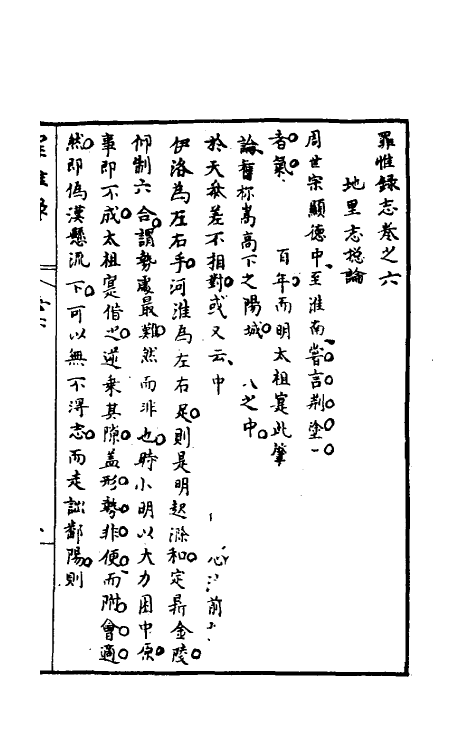 罪惟錄志卷之六
地里志總論
周世宗顯德中至淮南嘗言荆塗一
者氣 百年而明太祖寔此肇
論者称嵩高下之陽城 之中
於天 差不相對或又云中
伊洛為左右手河淮為左右足則是明起滁和定鼎金陵
仰制六合謂勢處最難然而非也時小明以大力困中原
事即不成太祖寔借之逆乘其隙盖形勢非便而附會適
然即偽漢懸流下可以無不得志而走訟鄱陽則